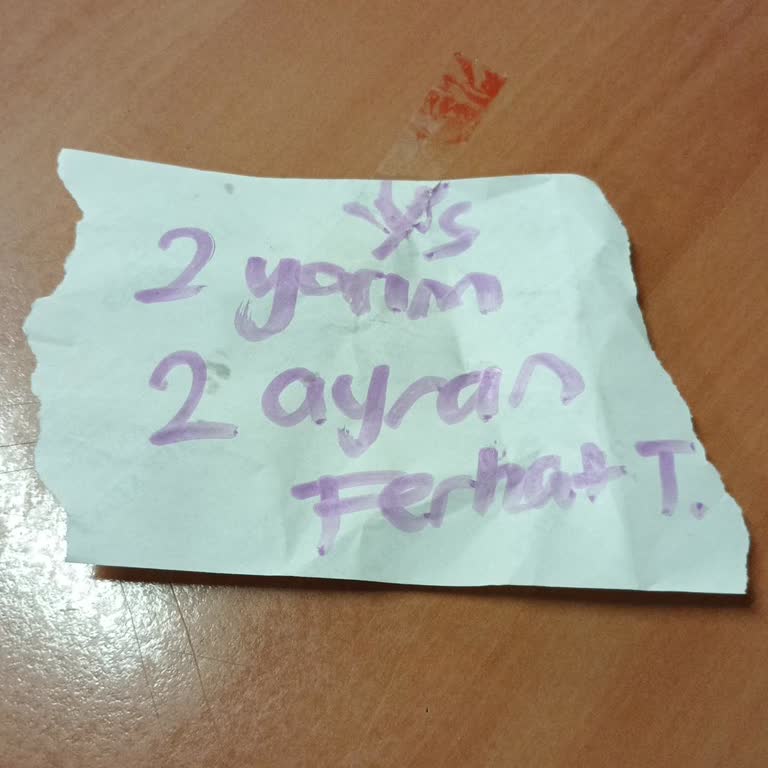 Ys
2 yarım
2 ayran
Ferhat T.